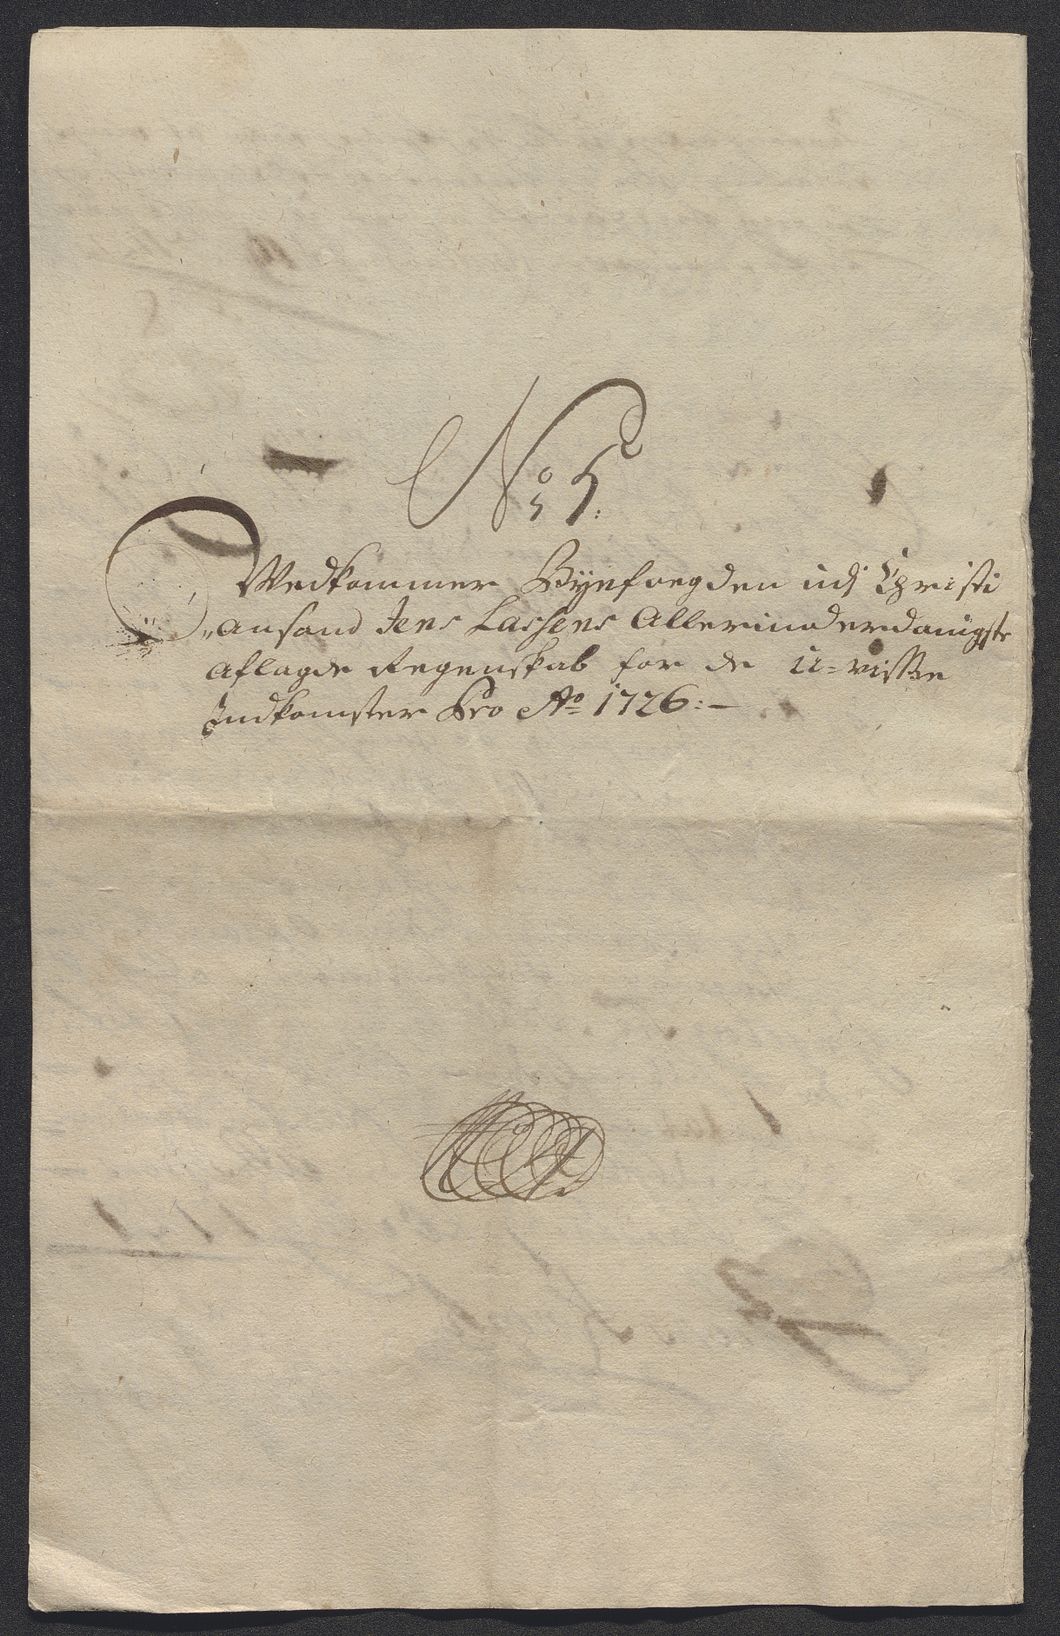 No 5:
Vedkommer Byefogden udj Christi
ansand Jens Lassens Allerunderdanigste
aflagde Regenskab for de u-visse
Indkomster Pro Ao 1726:-